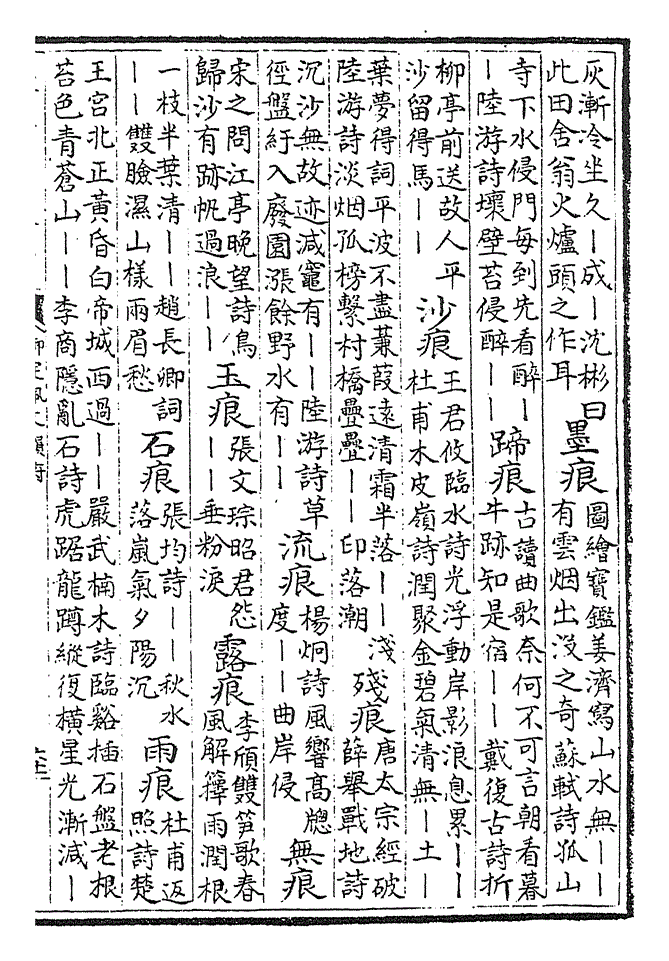 灰漸冷坐久｜成｜沈彬曰
此田舍翁火爐頭之作耳
墨痕
圖繪寶鑑姜濟寫山水無｜｜
有雲烟出没之奇蘇軾詩孤山
寺下水侵門每到先看醉｜
｜陸游詩壞壁苔侵醉｜｜
蹄痕
古讀曲歌奈何不可言朝看暮
牛跡知是宿｜｜戴復古詩折
柳亭前送故人平
沙留得馬｜｜
沙痕
王君攸臨水詩光浮動岸影浪息累｜｜
杜甫木皮嶺詩潤聚金碧氣清無｜土｜
葉夢得詞平波不盡蒹葭遠清霜半落｜｜淺
陸游詩淡烟孤榜繫村橋疊疊｜｜印落潮
殘痕
唐太宗經破
薛舉戰地詩
沉沙無故迹減竈有｜｜陸游詩草
徑盤紆入廢園漲餘野水有｜｜
流痕
楊炯詩風響高牕
度｜｜曲岸侵
無痕
宋之問江亭晚望詩鳥
歸沙有跡帆過浪｜｜
玉痕
張文琮昭君怨
｜｜垂粉淚
露痕
李頎雙笋歌春
風解籜雨潤根
一枝半葉清｜｜趙長卿詞
｜｜雙臉濕山樣兩眉愁
石痕
張均詩｜｜秋水
落嵐氣夕陽沉
雨痕
杜甫返
照詩楚
王宮北正黃昏白帝城西過｜｜嚴武楠木詩臨谿插石盤老根
苔色青蒼山｜｜李商隱亂石詩虎踞龍蹲縱復橫星光漸減｜